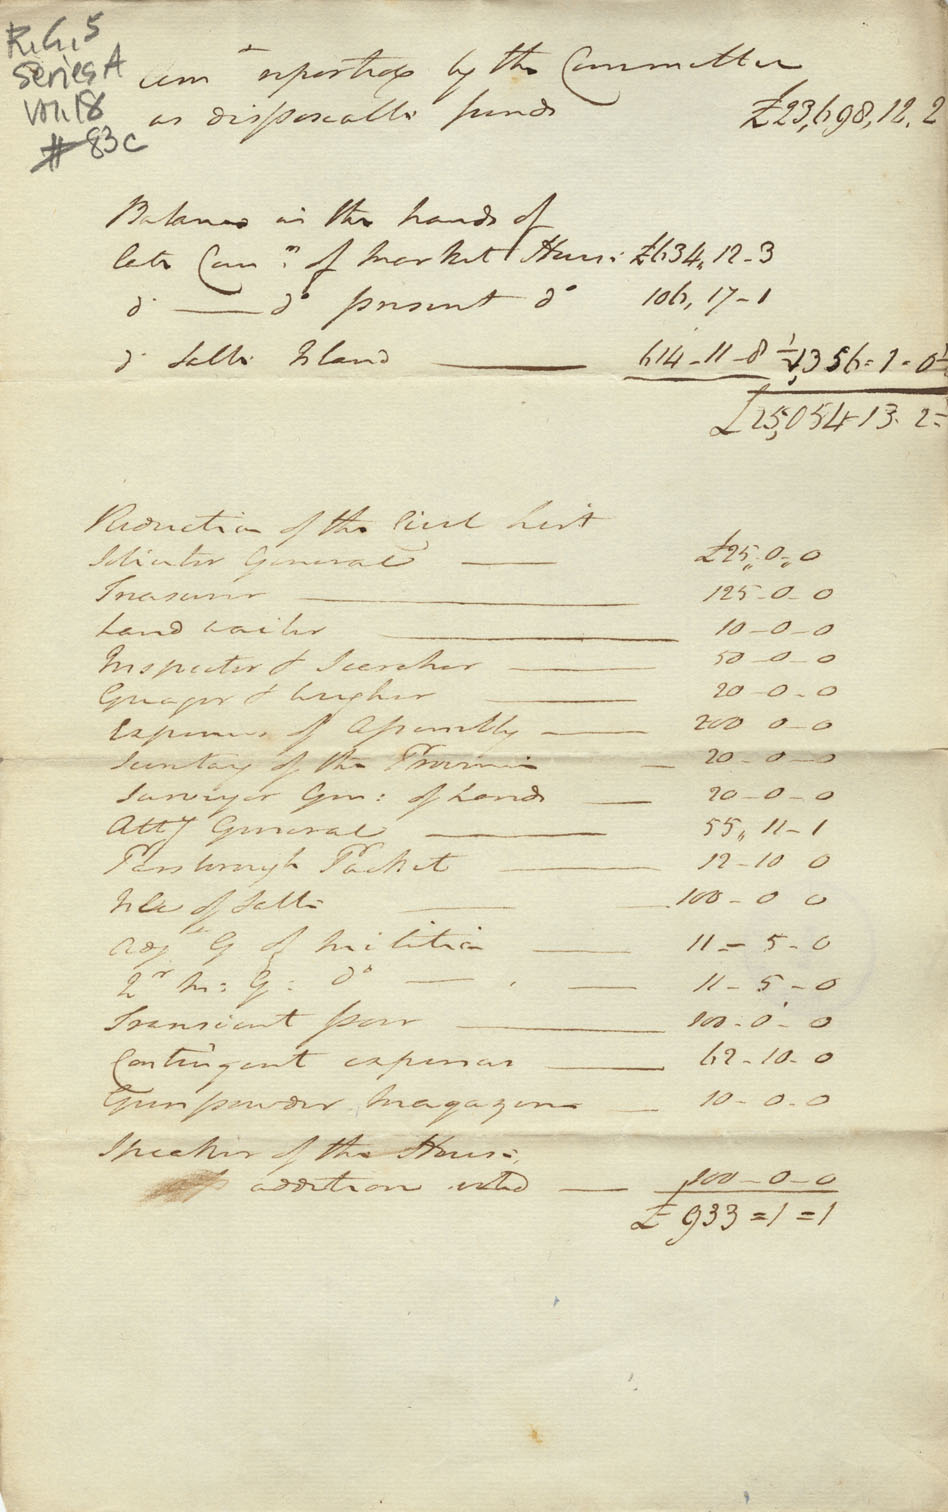 R.G. 5
Series A
Vol. 18
# 83c
Amt reported by the Committee
as disposeable funds £23,698, 12. 2
Balance in the hands of
late Comrs. of Market House £634,, 12 - 3
do — do present do 106, 17 - 1
do Sable Island — 614 - 11 - 8 ½ 1,356 = 1 = 0½
£25,054 13. 2 =
Reduction of the Civil List
Solicitor General — £25,, 0,, 0
Treasurer — 125 - 0 - 0
Land waiter — 10 - 0 - 0
Inspector & Searcher — 50 - 0 - 0
Guager & Weigher — 20 - 0 - 0
Expenses of Assembly — 200 0 - 0
Secretary of the Province — 20 - 0 - 0
Surveyor Gen: of Lands — 20 - 0 - 0
Atty General — 55,, 11 - 1
Parsborough Packet — 12 - 10 0
Isle of Sable — 100 - 0 0
Adjt G of Militia — 11 = 5 - 0
Qr M: G: do — 11 - 5 - 0
Transient poor — 100 - 0 - 0
Contingent expenses — 62 - 10 - 0
Gunpowder Magazine — 10 - 0 - 0
Speaker of the House
addition voted — 100 - 0 - 0
£ 933 = 1 = 1